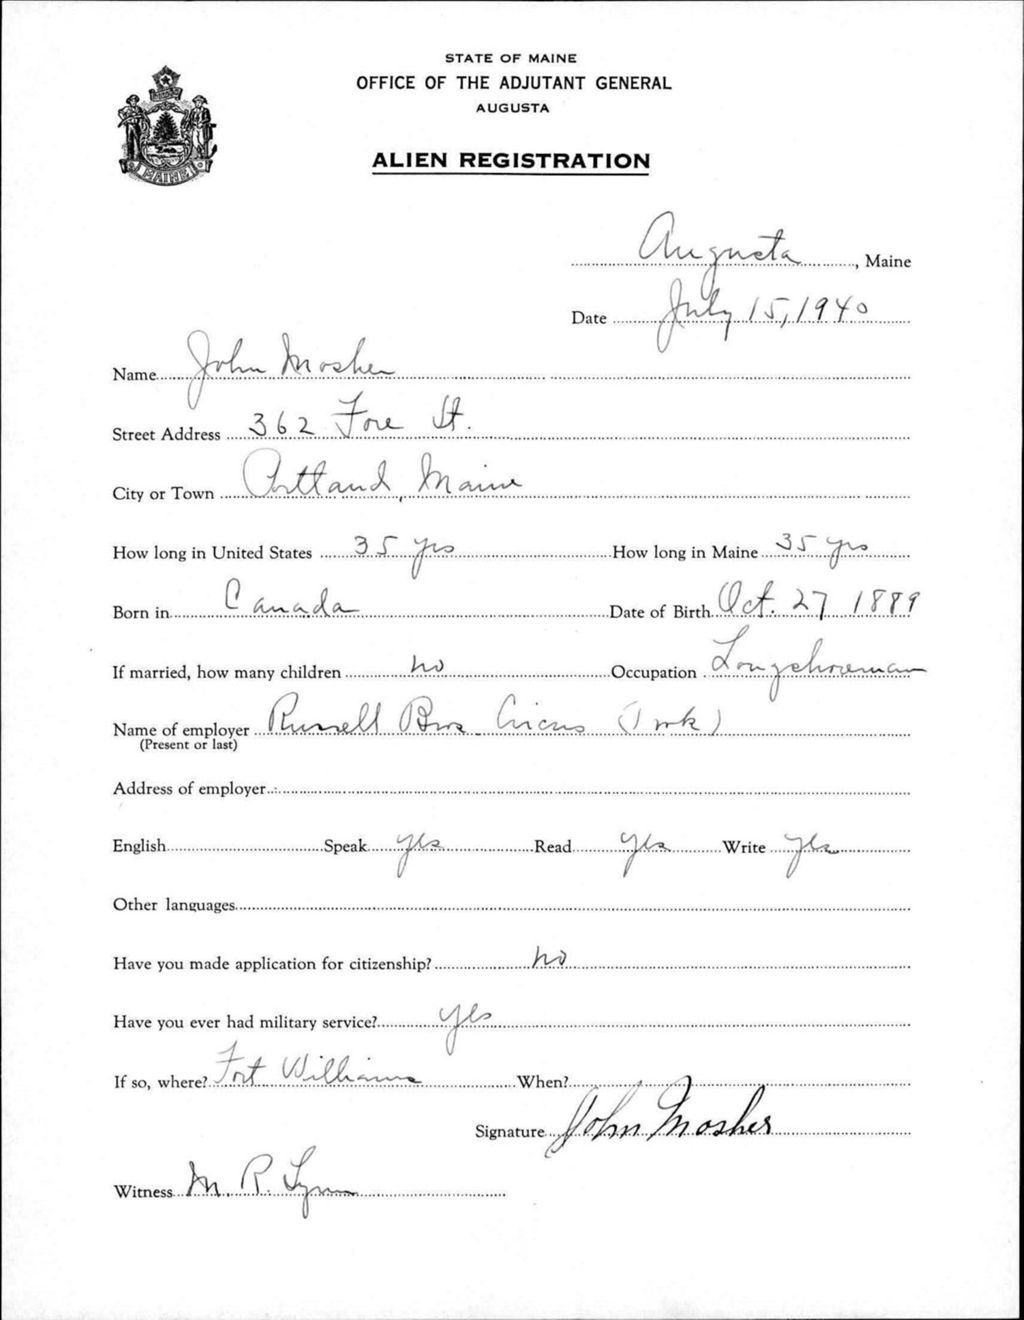 STATE OF MAINE
OFFICE OF THE ADJUTANT GENERAL
AUGUSTA
ALIEN REGISTRATION
MAINE
Augusta, Maine
Date July 15, 1940
Name John Mosher
Street Address 362 Fore St.
City or Town Portland, Maine
How long in United States 35 yrs How long in Maine 35 yrs
Born in Canada Date of Birth Oct. 27 1889
If married, how many children no Occupation Longshoreman
Name of employer Russell Bros Circus (1 wk)
(Present or last)
Address of employer
English Speak yes Read yes Write yes
Other languages
Have you made application for citizenship? no
Have you ever had military service? yes
If so, where? Fort Williams When?
Signature John Mosher
Witness M. R. Lynn